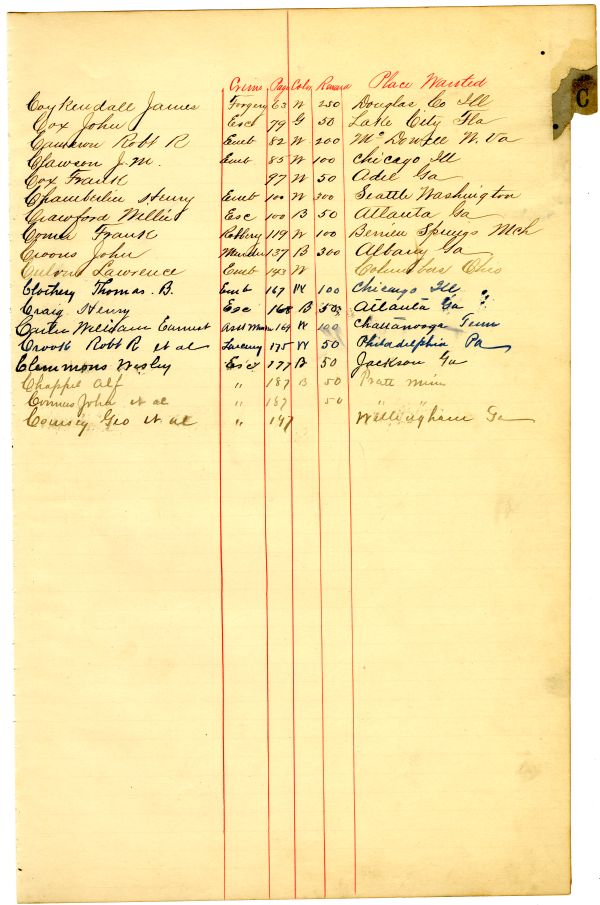 Crime Page Color Reward Place Wanted
C
Coykendall James Forgery 63 W 250 Douglas Co Ill
Cox John Esc 79 G 50 Lake City Fla
Cameron Robt R Emb 82 W 200 Mc Dowell W. Va
Clawson J. M. Emb 85 W 100 Chicago Ill
Cox Frank 97 W 50 Adel Ga
Chamberlin Henry Emb 100 W 200 Seattle Washington
Crawford Willie Esc 100 B 50 Atlanta Ga
Coma Frank Robbery 119 W 100 Berrien Springs Mch
Coons John Murder 137 B 300 Albany Ga
Culver Lawrence Emb 143 W Columbus Ohio
Clothery Thomas. B. Emb 167 W 100 Chicago Ill
Craig Henry Esc 168 B 50 Atlanta Ga
Carter William Emmet 169 W 100 Chattanooga Tenn
Crook Robt R et al Larceny 175 W 50 Philadelphia Pa
Clemmons Wesley Esc 177 B 50 Jackson Ga
Chappel Alf " 187 B 50 Pratt min
John et al " 187 50
Geo et al " 147 Ga